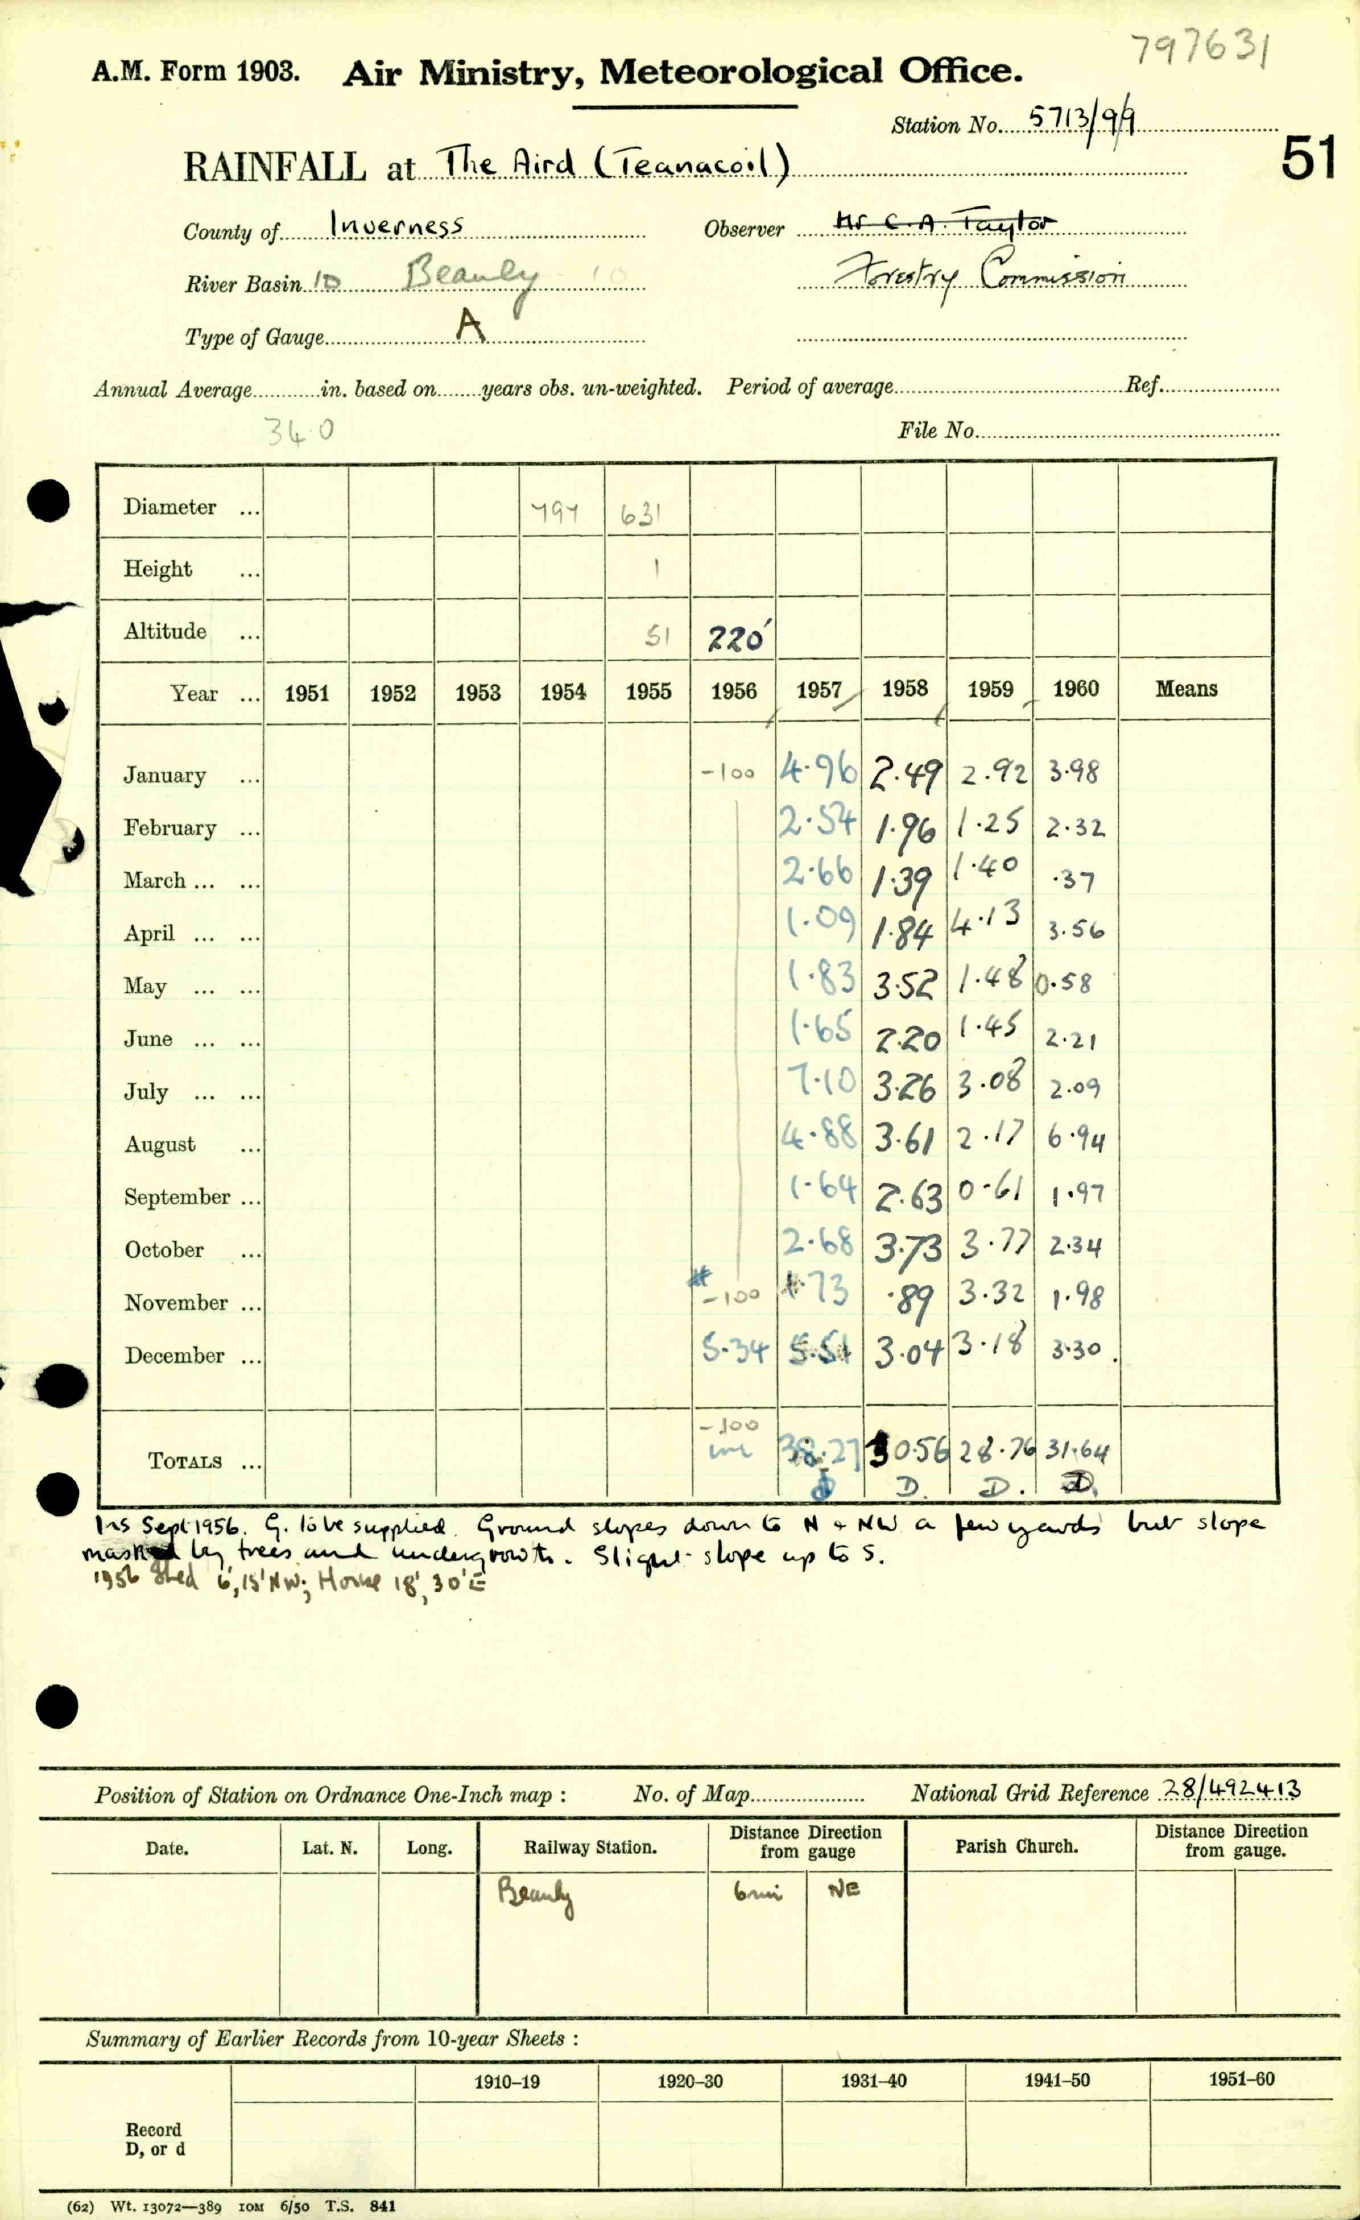 797631
A.M. Form 1903. Air Ministry, Meteorological Office.
Station No. 5713/9/9
51
RAINFALL at The Aird (Teanacoil)
County of Inverness Observer Mr C. A. Taylor
River Basin 10 Beauly 10 Forestry Commission
Type of Gauge A
Annual Average in. based on years obs. un-weighted. Period of average Ref.
34.0 File No.
Diameter ... 797 631
Height ... 1
Altitude ... 51 220'
Year ... 1951 1952 1953 1954 1955 1956 1957 1958 1959 1960 Means
January ... -100 4.96 2.49 2.92 3.98
February ... 2.54 1.96 1.25 2.32
March ... ... 2.66 1.39 1.40 .37
April ... ... 1.09 1.84 4.13 3.56
May ... ... 1.83 3.52 1.48 0.58
June ... ... 1.65 2.20 1.45 2.21
July ... ... 7.10 3.26 3.08 2.09
August ... 4.88 3.61 2.17 6.94
September ... 1.64 2.63 0.61 1.97
October ... 2.68 3.73 3.77 2.34
November ... # -100 1.73 .89 3.32 1.98
December ... 5.34 5.51 3.04 3.18 3.30.
-100
TOTALS ... inc 38.27 30.56 28.76 31.64
D. D. D.
Ins Sept 1956. G. to be supplied. Ground slopes down to N & NW a few yards but slope
masked by trees and undergrowth. Slight slope up to S.
1956 Shed 6', 15' NW; House 18', 30' E
Position of Station on Ordnance One-Inch map : No. of Map National Grid Reference 28/492413
Date. Lat. N. Long. Railway Station. Distance from gauge Direction Parish Church. Distance from gauge. Direction
Beauly 6mi NE
Summary of Earlier Records from 10-year Sheets :
1910–19 1920–30 1931–40 1941–50 1951–60
Record
D, or d
(62) Wt. 13072—389 10M 6/50 T.S. 841